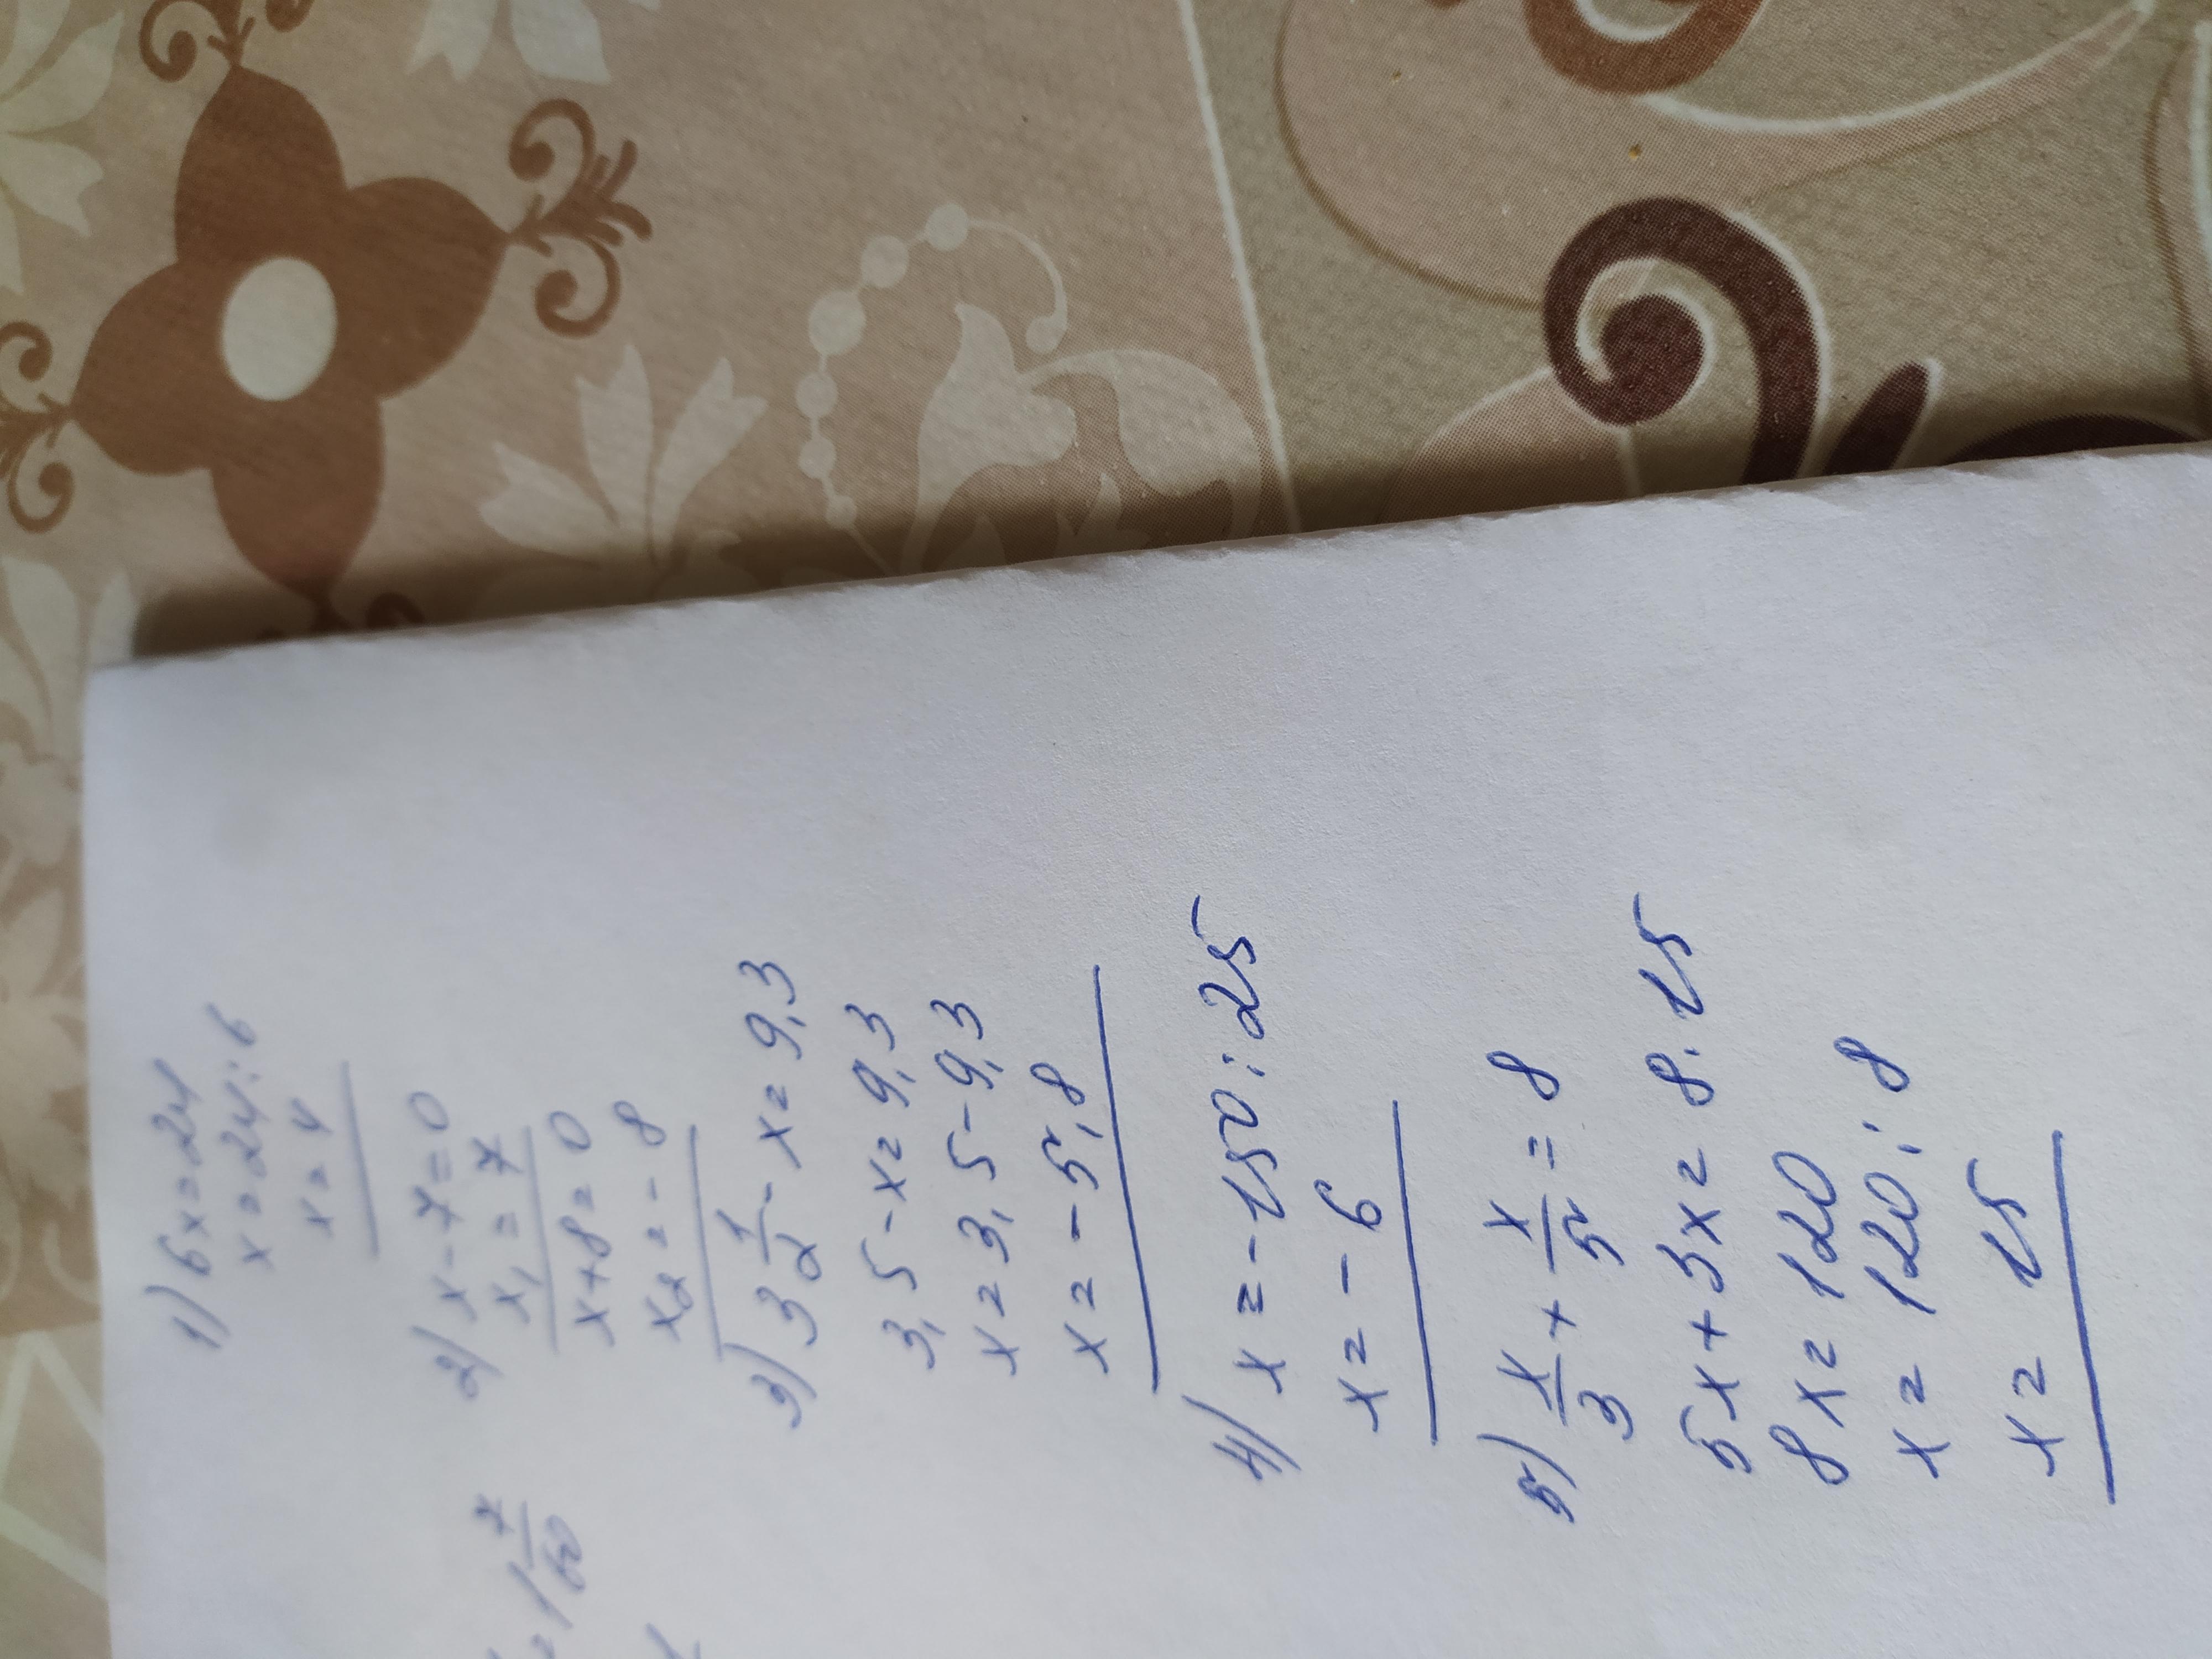 1) 6x=24
x=24:6
x=4
2) x-7=0
x₁=7
x+8=0
x₂=-8
3) 3 1/2 - x=9,3
3,5-x=9,3
x=3,5-9,3
x=-5,8
4) x=-150:25
x=-6
5) x/3 + x/5 = 8
5x+3x=8·15
8x=120
x=120:8
x=15
=1 7/60